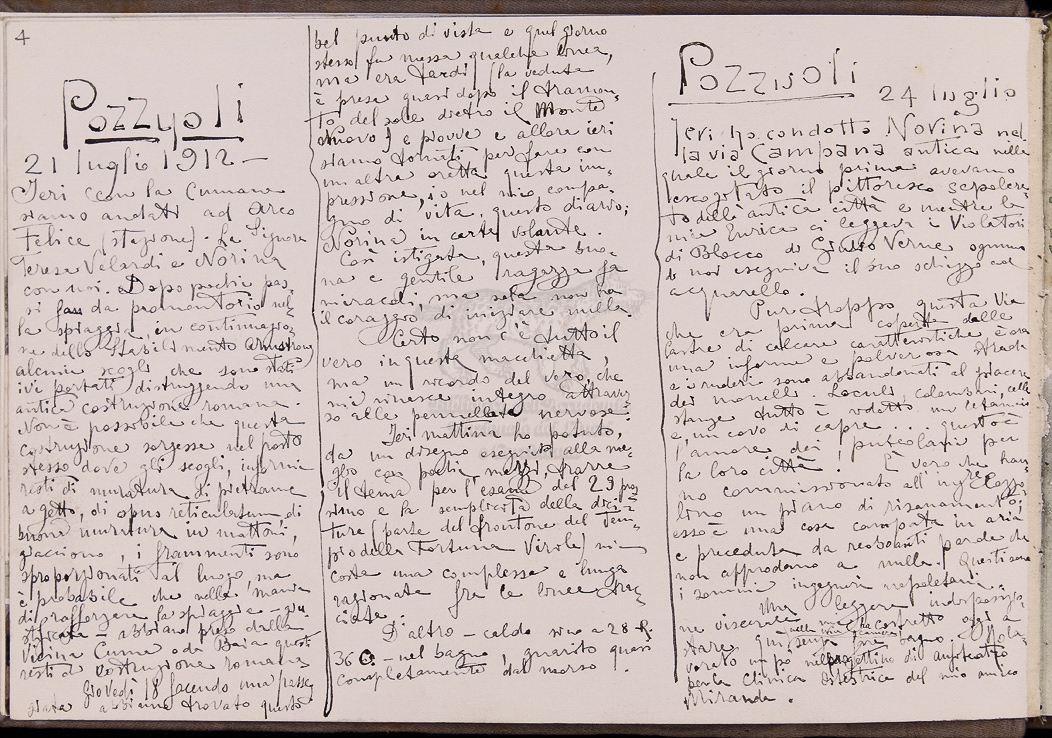 4
Pozzuoli
21 luglio 1912 —
Ieri con la Cumana
siamo andati ad Arco
Felice (stazione). La Signora
Teresa Velardi e Norina
con noi. Dopo pochi pas,
si fan da promontorio nel,
la spiaggia, in continuazio,
ne dello Stabilimento Armstrong
alcuni scogli che sono stati
ivi portati distruggendo una
antica costruzione romana.
Non è possibile che questa
costruzione sorgesse nel posto
stesso dove gli scogli, informi
resti di muratura di pietrame
a getto, di opus reticulatum, di
buone murature in mattoni,
giacciono, i frammenti sono
sproporzionati al luogo, ma
è probabile che nella mania
di rafforzare la spiaggia – giu
stificata – abbiano preso dalla
vicina Cuma o da Baia questi
resti di costruzione romana
Giovedì 18 facendo una passeg
giata abbiamo trovato questo
bel punto di vista e quel giorno
stesso fu messa qualche linea,
ma era tardi (la veduta
è presa quasi dopo il tramon,
to del sole dietro il Monte
Nuovo) e piovve e allora ieri
siamo tornati per fare con
un'altra oretta questa im,
pressione, io nel mio compa,
gno di vita, questo diario,
Norina in carta volante.
Così istigata, questa buo,
na e gentile ragazza fa
miracoli, ma sola non ha
il coraggio di iniziare nulla
Certo non è tutto il
vero in questa macchietta,
ma un ricordo del vero, che
mi rinasce integro attraver,
so alle pennellate nervose.
Ieri mattina ho potuto,
da un disegno eseguito alla me,
glio con pochi mezzi, trarre
il tema per l'esame del 29 pros
simo e la semplicità della dici
tura (parte del frontone del Tem,
pio della Fortuna Virile) mi
costa una complessa e lunga
ragionata fra le linee trac,
ciate.
D'altro – caldo sino a 28 R
36 C – nel bagno, guarito quasi
completamente dal morso.
Pozzuoli
24 luglio
Ieri ho condotto Norina nel
la via Campana antica nella
quale il giorno prima avevamo
fotografato il pittoresco sepolcre
to dell'antica città e mentre la
mia Enrica ci leggeva i Violatori
di Blocco di Giulio Verne ognuno
di noi eseguiva il suo schizzo ad
acquarello.
Pur troppo questa via
che era prima coperta dalle
lastre di calcare caratteristiche è ora
una informe e polverosa strada
e i ruderi sono abbandonati al piacere
dei monelli. Loculi, colombari, celle
stanze tutto è ridotto un letamaio
e, un covo di capre, e questo è
l'amore dei puteolani per
la loro città! È vero che han,
no commissionato all'ingre
lino un piano di risanamento,
esso è una cosa campata in aria
e preceduta da reoboanti parole che
non approdano a nulla. Questi sono
i sommi ingegneri napoletani.
Una leggera indisposizio,
ne viscerale mi ha costretto oggi a
stare qui, nella mia camera
senza far bagno. Ho la,
vorato un po nel progettino di
per la Clinica Ostetrica del mio amico
Miranda.